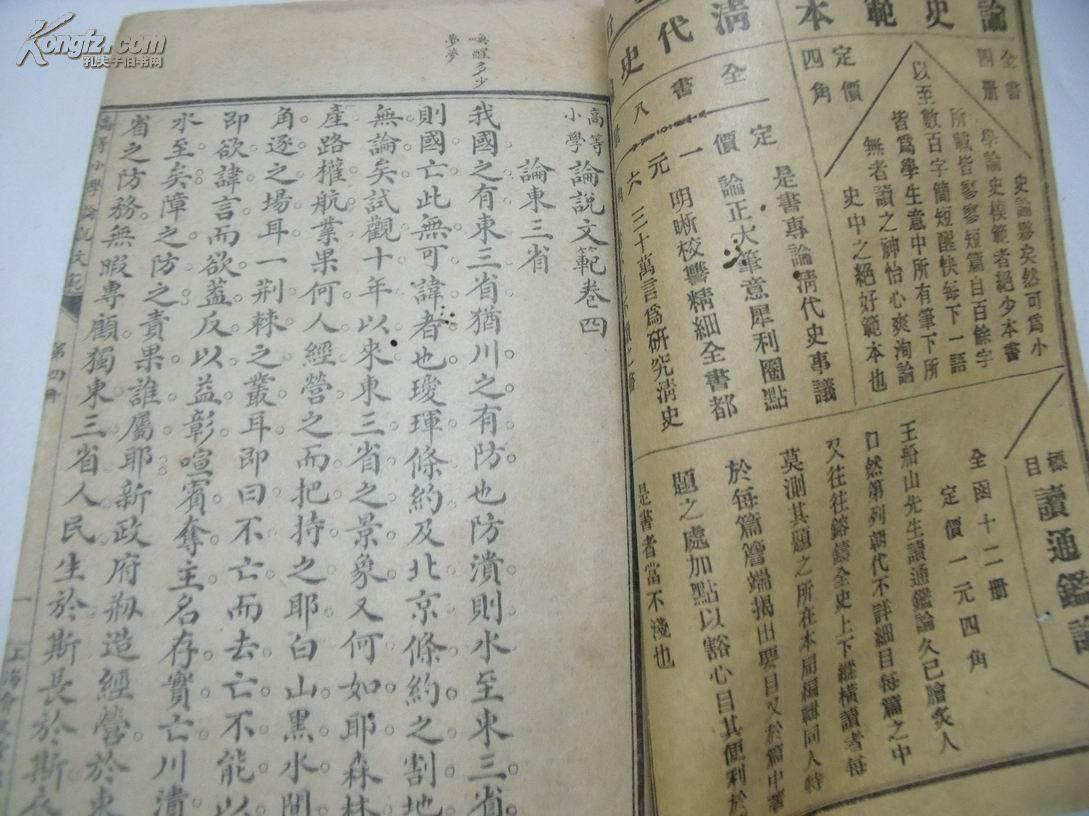 論史範本清代史
全書
四册
定價
四角
史論夥矣然可爲小
學論史模範者絕少本書
所載皆寥寥短篇自百餘字
以至數百字簡短醒快每下一語
皆爲學生意中所有筆下所
無者讀之神怡心爽洵論
史中之絕好範本也
全書八
定價一元六
是書專論清代史事議
論正大筆意犀利圈點
明晰校讐精細全書都
三十萬言爲研究清史
標目讀通鑑論
全函十二册
定價一元四角
王船山先生讀通鑑論久已膾炙人
口然第列朝代不詳細目每篇之中
又往往鎔鑄全史上下縱橫讀者每
莫測其題之所在本局編輯同人特
於每篇簷端揭出要目又於篇中著
題之處加點以豁心目其便利於
是書者當不淺也
喚醒多少
夢夢
高等
小學論說文範卷四
論東三省
我國之有東三省猶川之有防也防潰則水至東三省
則國亡此無可諱者也璦琿條約及北京條約之割地
無論矣試觀十年以來東三省之景象又何如耶森林
產路權航業果何人經營之而把持之耶白山黑水間
角逐之場耳一荆棘之叢耳即曰不亡而去亡不能以
即欲諱言而欲蓋反以益彰喧賓奪主名存實亡川潰
水至矣障之防之責果誰屬耶新政府剏造經營於東
省之防務無暇專顧獨東三省人民生於斯長於斯衣
高等小學論說文範
第四册
一
上海會文堂
Kongfz.com
孔夫子旧书网